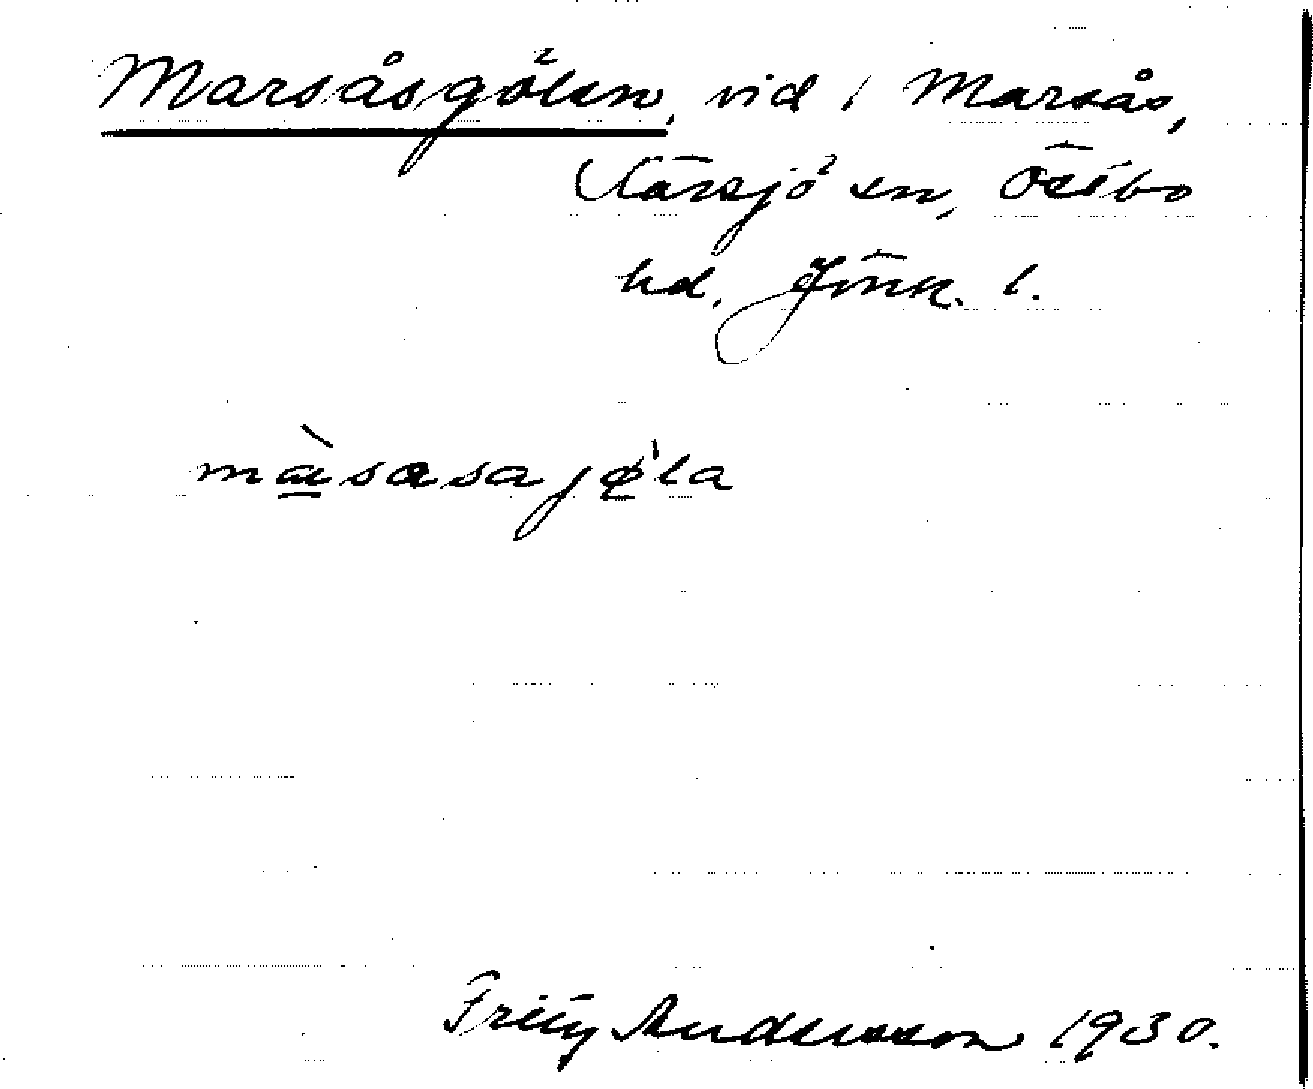 Marsåsgölen, vid / Marsås,
Värsjö sn, Östbo
hd. Jönk. l.
mæ̀sasajø̍la
Fritz Andersson 1930.